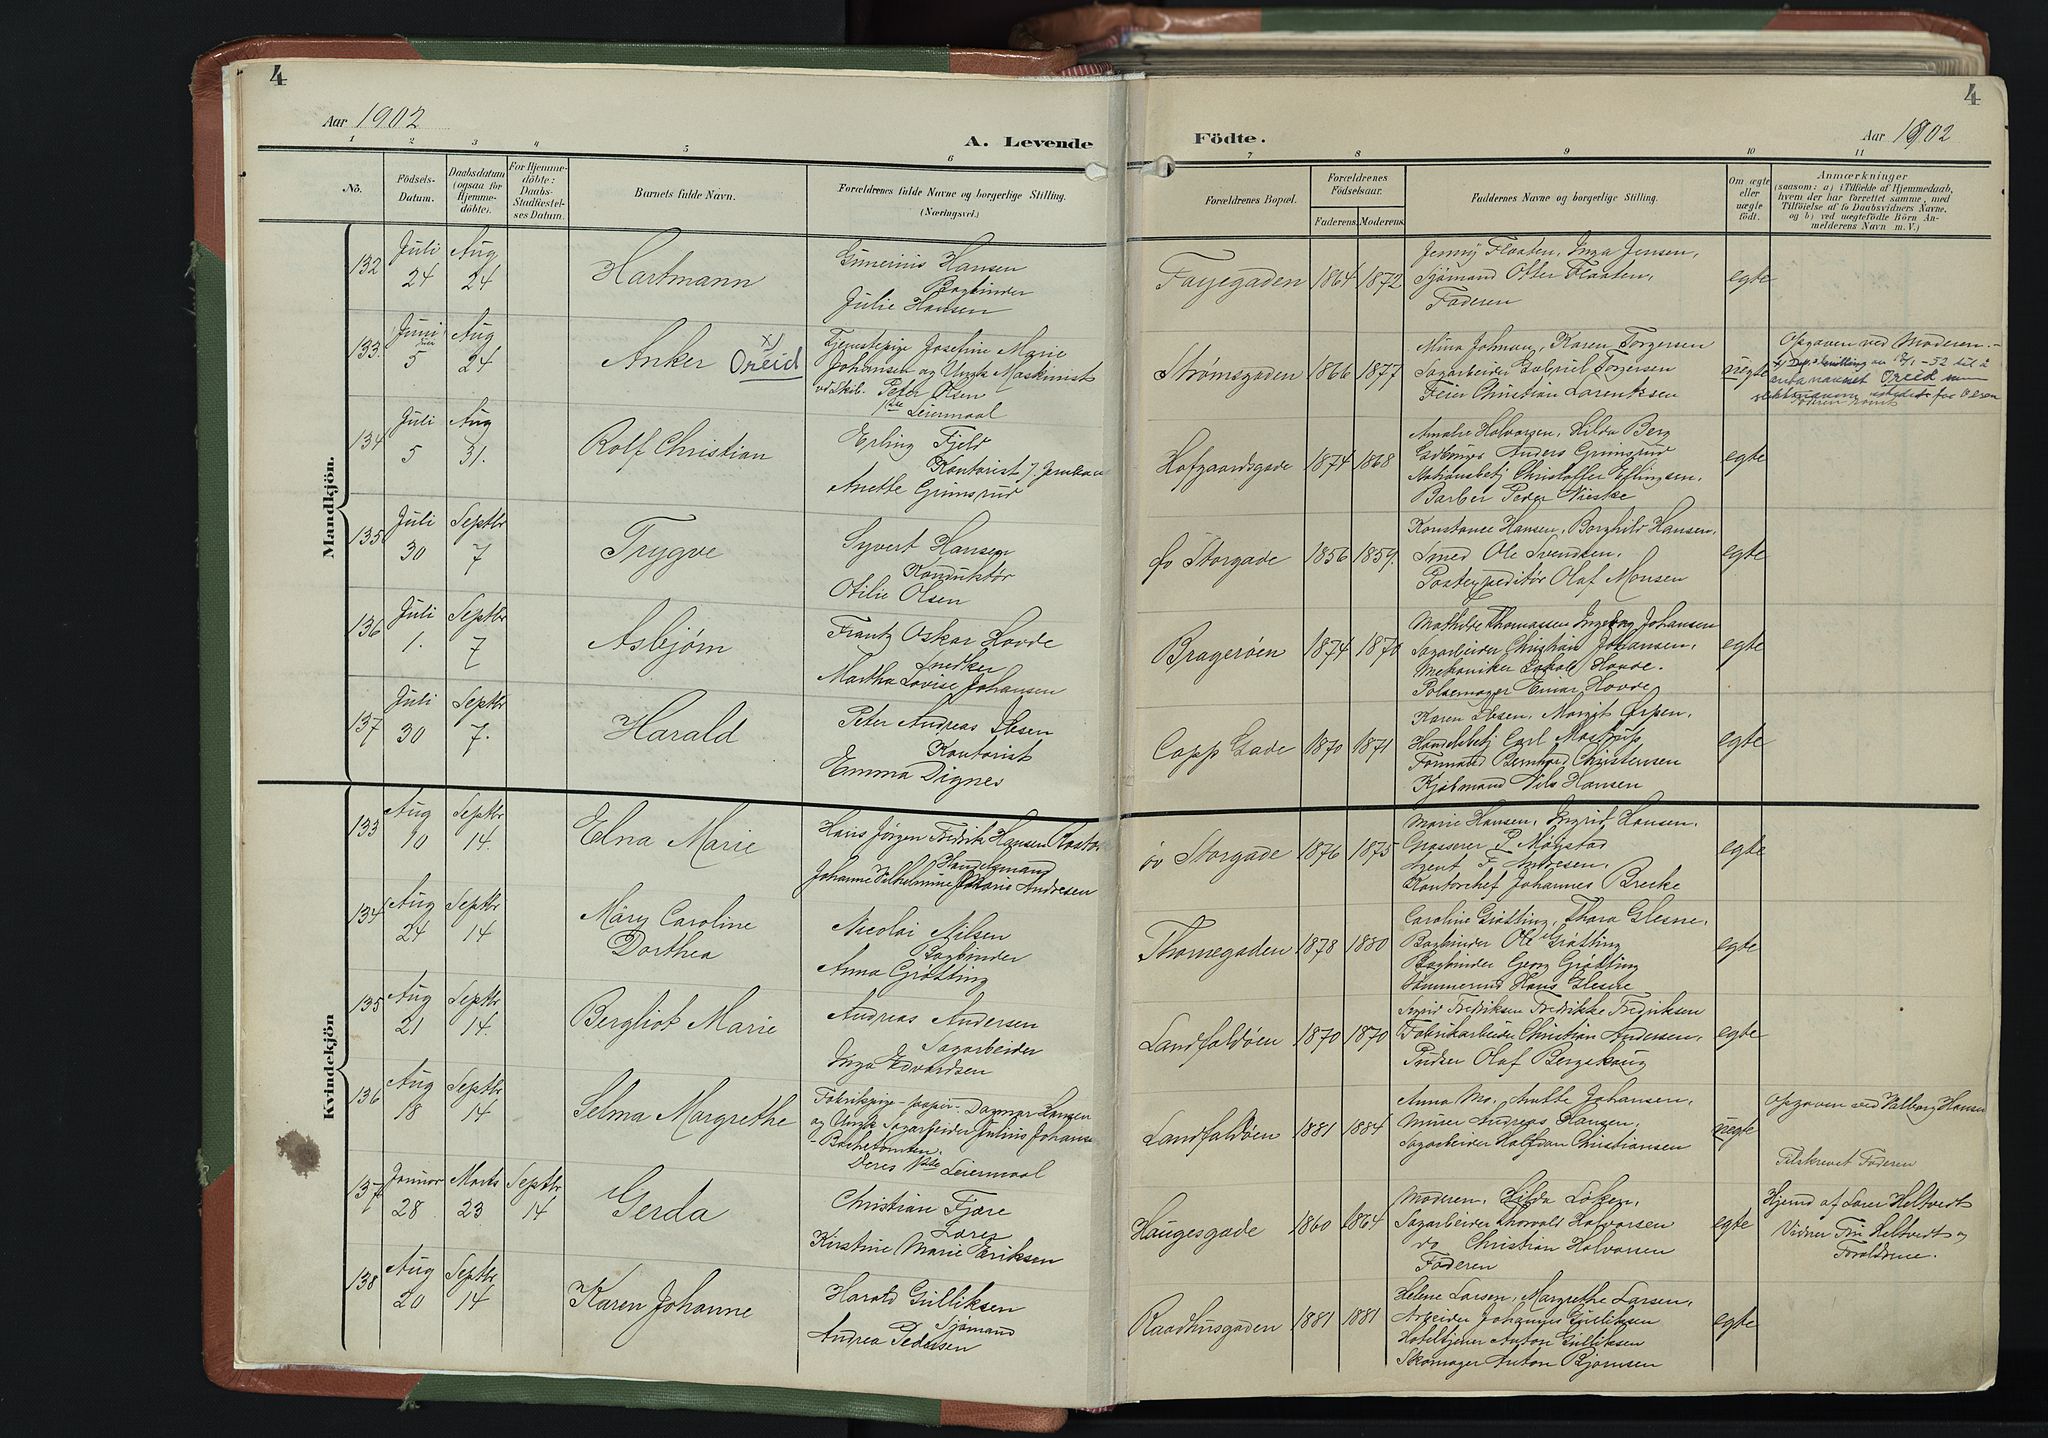 4
Aar 1902
A. Levende
1 2 3 4 5 6
No.
Födsels-Datum.
Daabsdatum (ogsaa for Hjemme-döbte).
For Hjemme-döbte: Daabs-Stadfæstel-ses Datum.
Barnets fulde Navn.
Forældrenes fulde Navne og borgerlige Stilling.
(Næringsvei.)
Mandkjön.
132 Juli 24 Aug 24 Hartmann
Gunerius Hansen
Bogbinder
Julie Hansen
133. Juni 5 Aug 24 Anker x) Oreid
Tjenestepige Josefine Marie
Johansen og Ungk Maskinist
Peter Olsen
1ste Leiermaal
134 Juli 5 Aug 31. Rolf Christian
Erling Fjeld
Kontorist
Anette Grimsrud
135 Juli 30 Septbr 7 Trygve
Syvert Hansen
Konduktør
Otilie Olsen
136 Juli 1. Septbr 7 Asbjørn
Frantz Oskar Hovde
Snedker
Martha Lovise Johansen
137 Juli 30 Septbr 7. Harald
Peter Andreas Ibsen
Kontorist
Emma Dignes
Kvindekjön
133 Aug 10 Septbr 14. Elna Marie
Hans Jörgen Fredrik Hansen
Handelsmand
Johanne Vilhelmine Marie Andresen
134 Aug 24 Septbr 14 Mary Caroline
Dorthea
Nicolai Nilsen
Bogbinder
Anna Grøtting
135 Aug 21 Septbr 14. Bergliot Marie
Andreas Andersen
Sagarbeider
Inga Edvardsen
136 Aug 18 Septbr 14 Selma Margrethe
Fabrikpige Dagmar
og Ungk Sagarbeider Julius Johans
Deres 1ste Leiermaal
137 Januar 28 Marts 23 Septbr 14 Gerda
Christian Fjære
Kirstine Marie Eriksen
138 Aug 20 Septbr 14 Karen Johanne
Harald Gulliksen
Sjømand
Andrea Pedersen
4
Aar 1902
Födte.
7 8 9 10 11
Forældrenes Bopæl.
Forældrenes Födselsaar.
Faderens. Moderens.
Faddernes Navne og borgerlige Stilling.
Om ægte eller uægte födt.
Anmærkninger
(saasom: a) i Tilfælde af Hjemmedaab,
hvem der har forrettet samme, med
Tilföielse af to Daabsvidners Navne,
og b) ved uægtefödte Börn An-
melderens Navn m. V.)
Fayegaden 1864 1872 egte
Jenny Flaaten, Inga Jensen,
Sjømand Otter Flaaten,
Faderen
Strømsgaden 1866 1877 uegte
Mina Johnsen, Karen Torgersen
Sagarbeider Gabriel Torgersen
Feier Christian Larentsen
Opgaven ved Moderen.
til å
anta navnet Oreid som
istedet for Olsen
Hofgaardsgade 1874 1868 egte
Amalie Halvorsen, Hilda Berg
Anders Grimsrud
Christoffer
Barber Peder Nieske
øv Storgade 1856 1859. egte
Konstance Hansen, Borghild Hansen,
Smed Ole Svendsen,
Postexpeditør Olaf Monsen
Bragerøen 1874 1870 egte
Mathilde Thomassen Ingeborg Johansen
Sagarbeider Christian Johansen,
Mekaniker Hovde.
Pølsemager Einar Hovde
Copp Gade 1870 1871 egte
Karen Ibsen, Margit Ørpen,
Handelsbetj Carl Mostrup
Formand Bernhard Christensen
Kjøbmand Nils Hansen
øv Storgade 1876 1875 egte
Marie Hansen, Ingrid Hansen.
Grosserer P. Møystad
Agent F. Andresen,
Kontorchef Johannes Brecke
Thornegaden 1878 1880 egte
Caroline Grøtting, Thora Glesne,
Bogbinder Ole Grøtting
Bogbinder Georg Grøtting
Tømmermd Hans Glesne
Landfaldøen 1870 1870 egte
Sigrid Fredriksen Fredrikke Fredriksen
Fabrikarbeider Christian Andersen,
Pudser Olaf Bergskaug
Landfaldøen 1881 1884 uegte
Anna Mo, Anette Johansen,
Murer Andreas Hansen,
Sagarbeider Halfdan Christiansen
Opgaven ved Valborg Hansen
Tilskrevet Faderen
Haugesgade 1860 1864 egte
Moderen, Hilda Løken,
Sagarbeider Thorvald Halvorsen
do Christian Halvorsen
Faderen
Hjemd af Heltvedt
Vidner Fru Heltvedt og
Forældrene.
Raadhusgaden 1881 1881 egte
Helene Larsen, Margrethe Larsen,
Arbeider Johannes Gulliksen
Hoteltjener Anton Gulliksen
Skomager Anton Bjørnsen